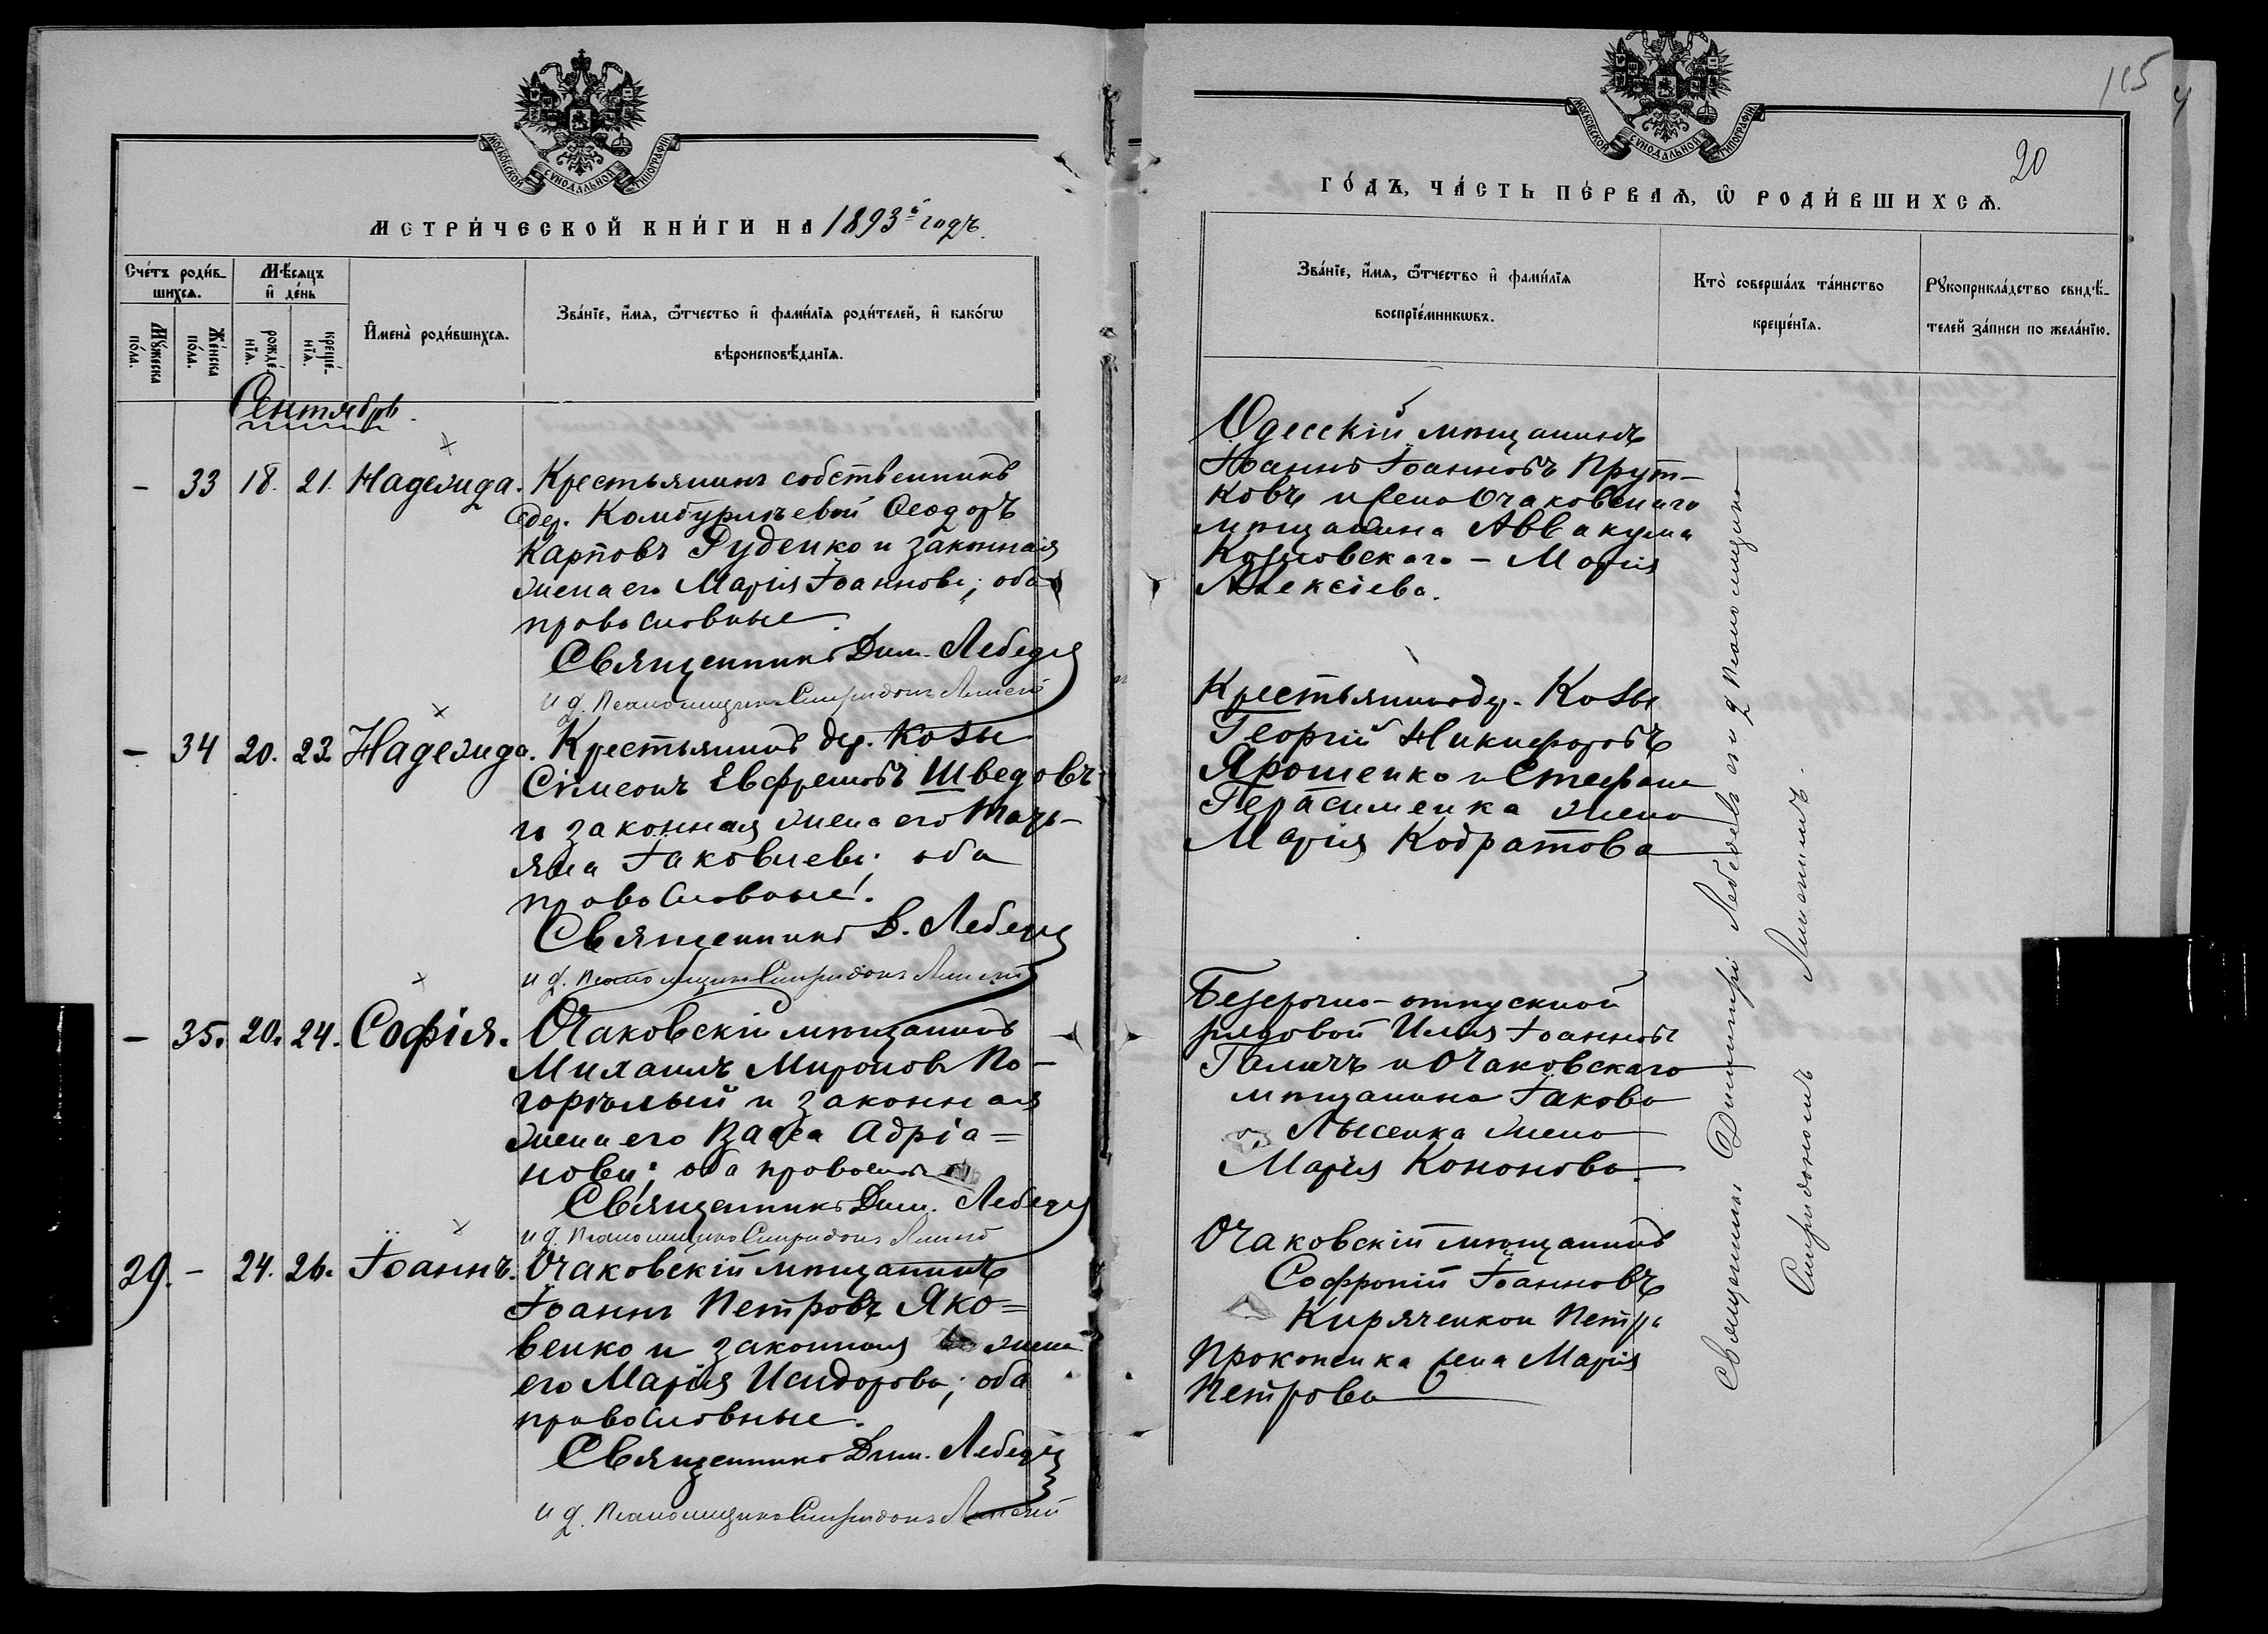 МОСКОВСКОЙ СУНОДАЛЬНОЙ ТИПОГРАФІИ
МЕТРИ́ЧЕСКОЙ КНИ́ГИ НА 1893й годъ.
Сче́тъ роди́в-
шихся.
Мѣ́сяцъ
и҆ де́нь
Му́жеска
по́ла.
Же́нска
по́ла.
рожде́-
нїя.
креще́-
нїя.
И҆мена̀ роди́вшихся.
Зва́нїе, и҆́мя, ѻ҆́тчество и҆ фами́лїя роди́телей, и҆ како́гѡ
вѣроисповѣ́данїя.
Сентябрь.
- 33 18. 21. Надежда. Крестьянинъ собственникъ
дер. Комбурлѣевой Ѳеодоръ
Карповъ Руденко и законная
жена его Марія Іоаннова; оба
православные.
Священникъ Дим. Лебедевъ
и д. Псаломщика Спиридонъ
- 34 20. 23. Надежда. Крестьянинъ дер. Козы
Сѵмеонъ Евфремовъ Шведовъ
и законная жена его Тать-
яна Іаковлева; оба
православные.
Священникъ Д. Лебедевъ
и д. Псаломщика Спиридонъ
- 35. 20. 24. Софія. Очаковскій мѣщанинъ
Михаилъ Мироновъ По-
горѣлый и законная
жена его Васса Адріа=
нова; оба православные
Священникъ Дим. Лебедевъ
и д. Псаломщика Спиридонъ
29. - 24. 26. Іоаннъ. Очаковскій мѣщанинъ
Іоаннъ Петровъ Яко=
венко и законная жена
его Марія Исидорова; оба
православные.
Священникъ Дим. Лебедевъ
и д. Псаломщика Спиридонъ
115
20
МОСКОВСКОЙ СУНОДАЛЬНОЙ ТИПОГРАФІИ
ГО́ДЪ, ЧА́СТЬ ПЕ́РВАЯ, Ѡ҆ РОДИ́ВШИХСЯ.
Зва́нїе, и҆́мя, ѻ҆́тчество и҆ фами́лїя
воспрїе́мникѡвъ.
Кто̀ соверша́лъ та́инство
креще́нїя.
Рꙋкоприкла́дство свидѣ́-
телей за́писи по жела́нїю.
Одесскій мѣщанинъ
Іоаннъ Іоанновъ Прут-
ковъ и жена Очаковскаго
мѣщанина Аввакума
Козловскаго - Марія
Алексіева.
Крестьянинъ дер. Козы
Георгій Никифоровъ
Ярошенко и Стефана
Герасименка жена
Марія Кодратова
Безсрочно-отпускной
рядовой Илія Іоанновъ
Галичъ и Очаковскаго
мѣщанина Іакова
Лысенка жена
Марія Кононова.
Очаковскій мѣщанинъ
Софроній Іоанновъ
Киряченко и Петра
Прокопенка жена Марія
Петрова
Священникъ Димитрій Лебедевъ съ и д Псаломщика
Спиридономъ